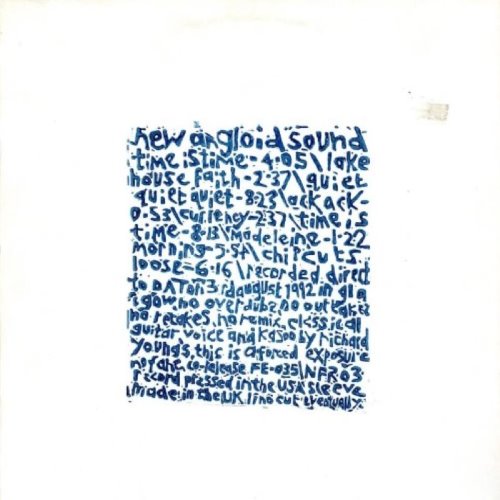 new angloid sound
time is time-4.05\lake
house faith-2.37\quiet
quiet quiet-8.23\ack ack-
0.53\currency-2.37\time is
time-8.13\madeleine-1.22
morning-5.54\chip cuts
loose-6.16\recorded direct
to DAT on 3rd august 1992 in gla
sgow. no overdubs no outtakes
no retakes, no remix, classical
guitar voice and kazoo by richard
youngs, this is a forced exposure
nofane co-release FE-035\NFR03
record pressed in the USA sleeve
made in the UK lino cut eventually.